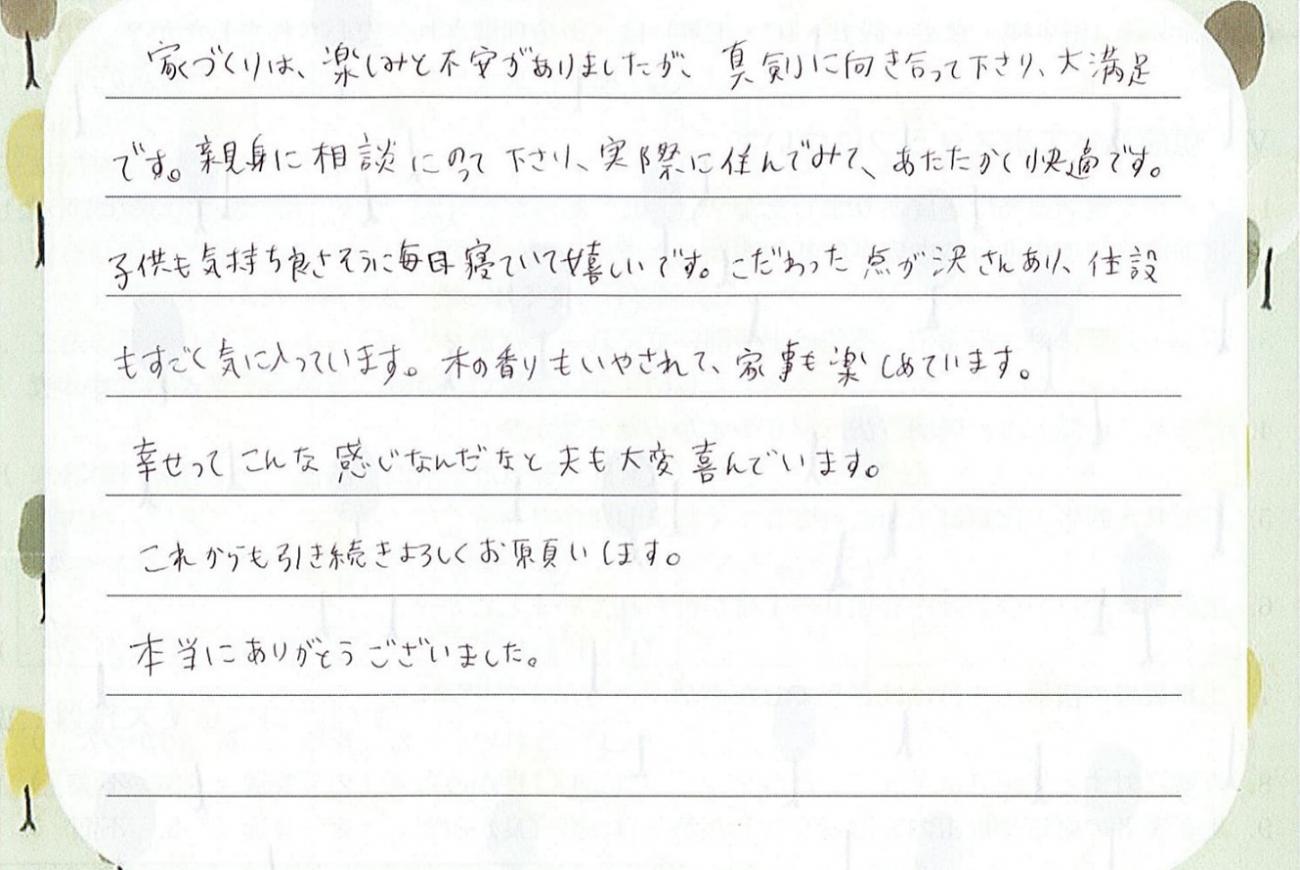 家づくりは、楽しみと不安がありましたが、真剣に向き合って下さり、大満足
です。親身に相談にのって下さり、実際に住んでみて、あたたかく快適です。
子供も気持ち良さそうに毎日寝ていて嬉しいです。こだわった点が沢さんあり、仕設
もすごく気に入っています。木の香りもいやされて、家事も楽しめています。
幸せってこんな感じなんだなと夫も大変喜んでいます。
これからも引き続きよろしくお願いします。
本当にありがとうございました。